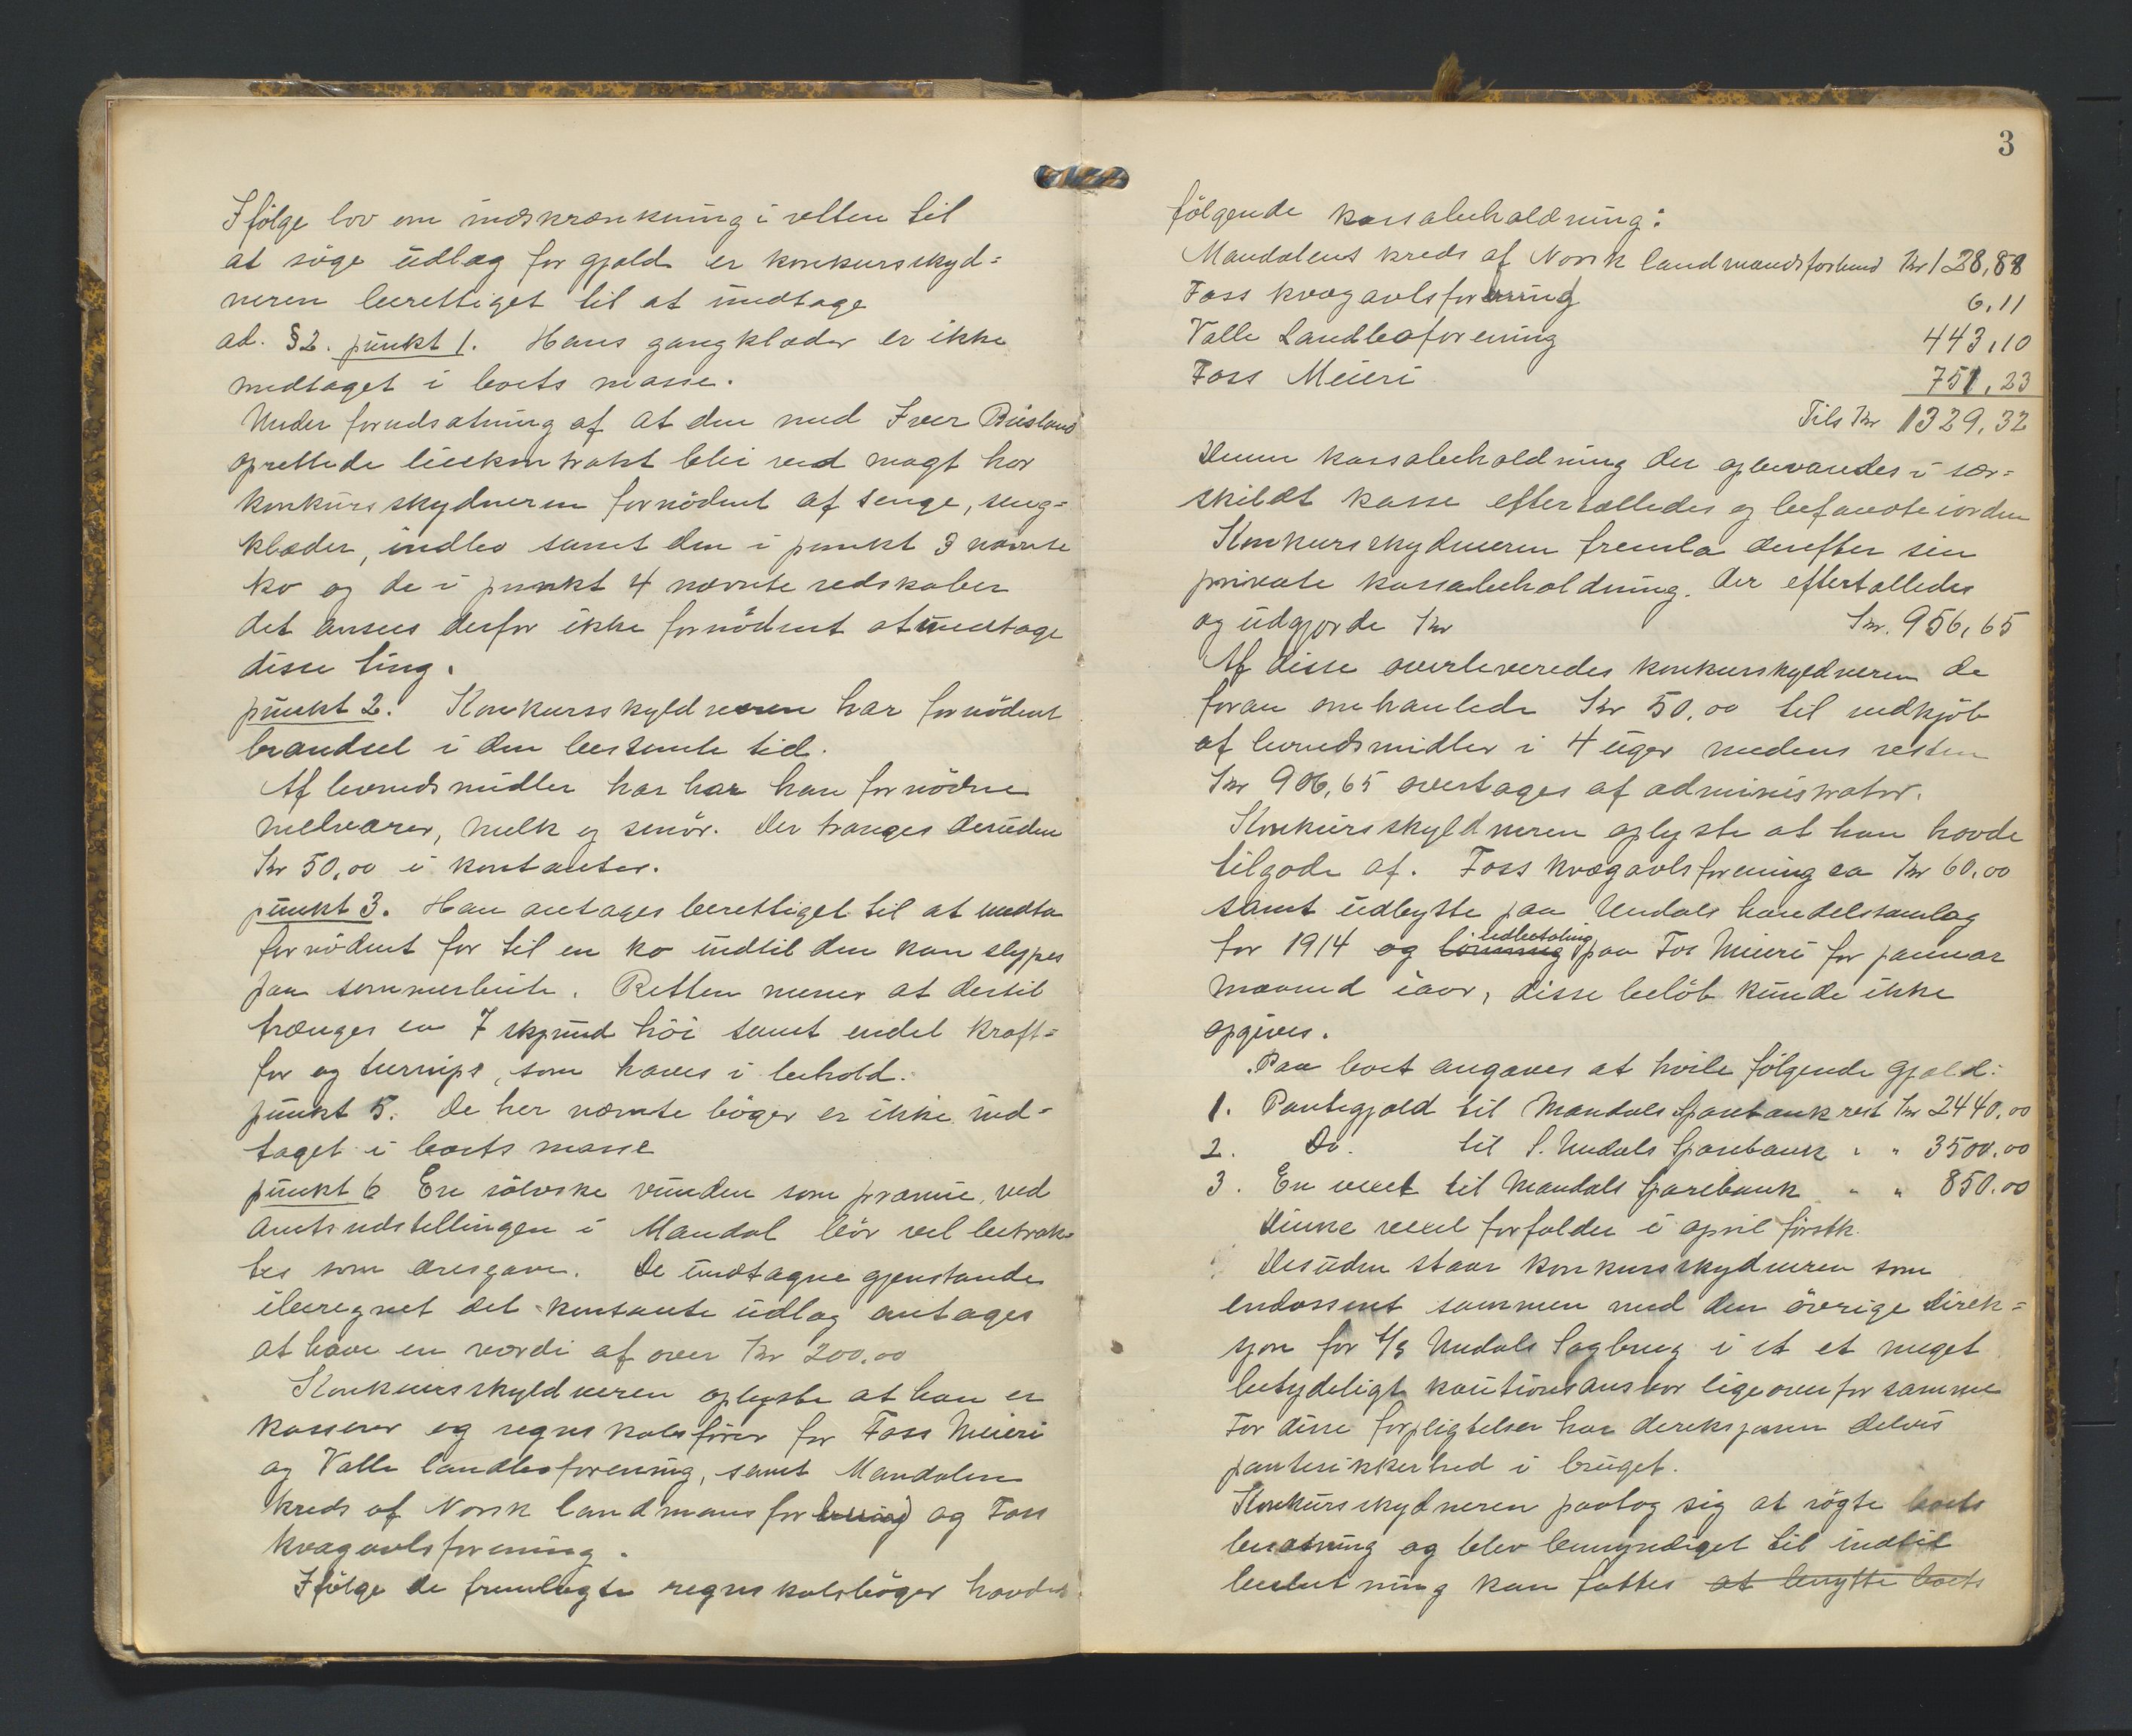 Ifölge lov om indskrænkning i retten til
at söge udlæg for gjæld er konkursskyd=
neren berettiget til at undtage
ad. §2. punkt 1. Hans gangklæder er ikke
medtaget i boets masse.
Under forudsætning af at den med Iver Büsland
oprettede livskontrakt blir ved magt har
konkursskydneren fornödent af senge, seng=
klæder, indbo samt den i punkt 3 nævnte
ko og de i punkt 4 nævnte redskaber
det ansees derfor ikke fornödent at undtage
disse ting.
punkt 2. Konkursskyldneren har fornödent
brændsel i den bestemte tid.
Af levnedsmidler har har han fornödne
melvarer, melk og smör. Der trænges desuden
Kr 50,00 i kontanter.
punkt 3. Han antages berettiget til at undta
fornödent for til en ko indtil den kan slippes
paa sommerbeite. Retten mener at dertil
trænges ca 7 skpund höi samt endel kraft=
for og turnips, som haves i behold.
punkt 5. De her nævnte böger er ikke ind=
taget i boets masse
punkt 6 En sölvske vunden som præmie ved
Amtsudstillingen i Mandal bör vel betrak=
tes som æresgave. De undtagne gjenstande
iberegnet det kontante udlæg antages
at have en værdi af over Kr 200,00
Konkursskyldneren oplyste at han er
kasserer og regnskabsförer for Foss Meieri
og Valle landboforening, samt Mandalens
kreds af Norsk landmansforbund og Foss
kvægavlsforening.
Ifölge de fremlagte regnskabsböger havdes
3
fölgende kassabeholdning:
Mandalens kreds af Norsk landmandsforbund Kr 128,88
Foss kvægavlsforening 6,11
Valle Landboforening 443,10
Foss Meieri 751,23
Tils Kr 1329,32
Denne kassabeholdning der opbevaredes i sær=
skildt kasse eftertælledes og befandtes iorden
Konkursskydneren fremla derefter sin
private kassabeholdning. Der eftertælledes
og udgjorde Kr Kr. 956,65
Af disse overleveredes konkursskyldneren de
foran omhanlede Kr 50,00 til indkjöb
af levnedsmidler i 4 uger medens resten
Kr 906,65 overtages af administrator.
Konkursskyldneren oplyste at han havde
tilgode af. Foss kvægavlsforening ca Kr 60,00
samt udbytte paa Undals handelssamlag
udbetaling
for 1914 og lönning paa Fos Meieri for januar
maaned iaar, disse belöb kunde ikke
opgives.
Paa boet angaves at hvile fölgende gjæld:
1. Pantegjæld til Mandals Sparebank rest Kr 2440,00
2. Do. til S. Undals Sparebank " " 3500,00
3. En vexel til Mandals Sparebank " " 850,00
Denne vexel forfalder i april förstk.
Desuden staar konkursskydneren som
endossent sammen med den övrige direk=
sjon for A/S Undals Sagbrug i et et meget
betydeligt kautionsansvar ligeoverfor samme
For disse forpligtelser har direksjonen delvis
pantesikkerhed i bruget.
Konkursskydneren paatog sig at rögte boets
besætning og blev bemyndiget til indtil
beslutning kan fattes at benytte boets